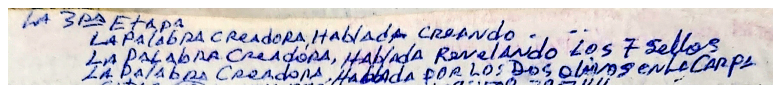 LA 3RA EtAPA
LA PALABRA CREADORA, HAblADA CREANDO.
LA PALABRA CREADORA, HAblADA REVELANDO LOS 7 Sellos
LA PALABRA CREADORA, HABLADA POR LOS DOS OLIVOS EN LA CARPA